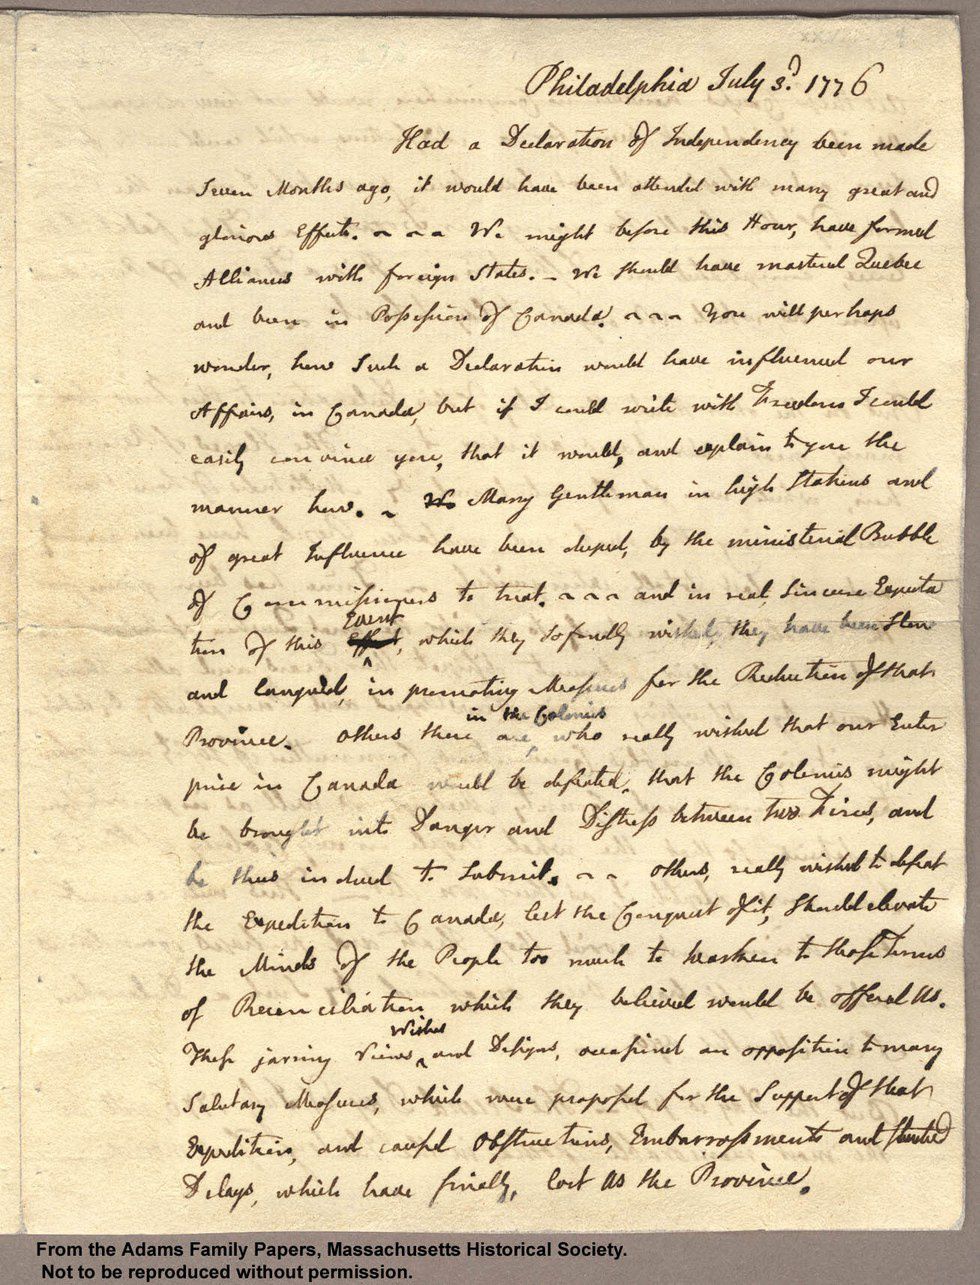 Philadelphia July 3d. 1776
Had a Declaration of Independency been made
seven Months ago, it would have been attended with many great and
glorious Effects. ~ ~ ~ We might before this Hour, have formed
Alliances with foreign States. - We should have mastered Quebec
and been in Possession of Canada. ~ ~ ~ You will perhaps
wonder, how such a Declaration would have influenced our
Affairs, in Canada, but if I could write with Freedom I could
easily convince you, that it would, and explain to you the
manner how. ~ We Many Gentlemen in high Stations and
of great Influence have been duped, by the ministerial Bubble
of Commissioners to treat. ~ ~ ~ and in real, sincere Expecta
Event
tion of this Effort, which they so fondly wished, they have been slow
and languid, in promoting Measures for the Reduction of that
in the Colonies
Province. Others there are, who really wished that our Enter
prise in Canada would be defeated, that the Colonies might
be brought into Danger and Distress between two Fires, and
be thus induced to submit. ~ ~ Others, really wished to defeat
the Expedition to Canada, lest the Conquest of it, should elevate
the Minds of the People too much to hearken to those Terms
of Reconciliation which they believed would be offered Us.
Wishes
These jarring Views and Designs, occasioned an opposition to many
salutary Measures, which were proposed for the Support of that
Expedition, and caused Obstructions, Embarrassments and studied
Delays, which have finally, lost Us the Province.
From the Adams Family Papers, Massachusetts Historical Society.
Not to be reproduced without permission.